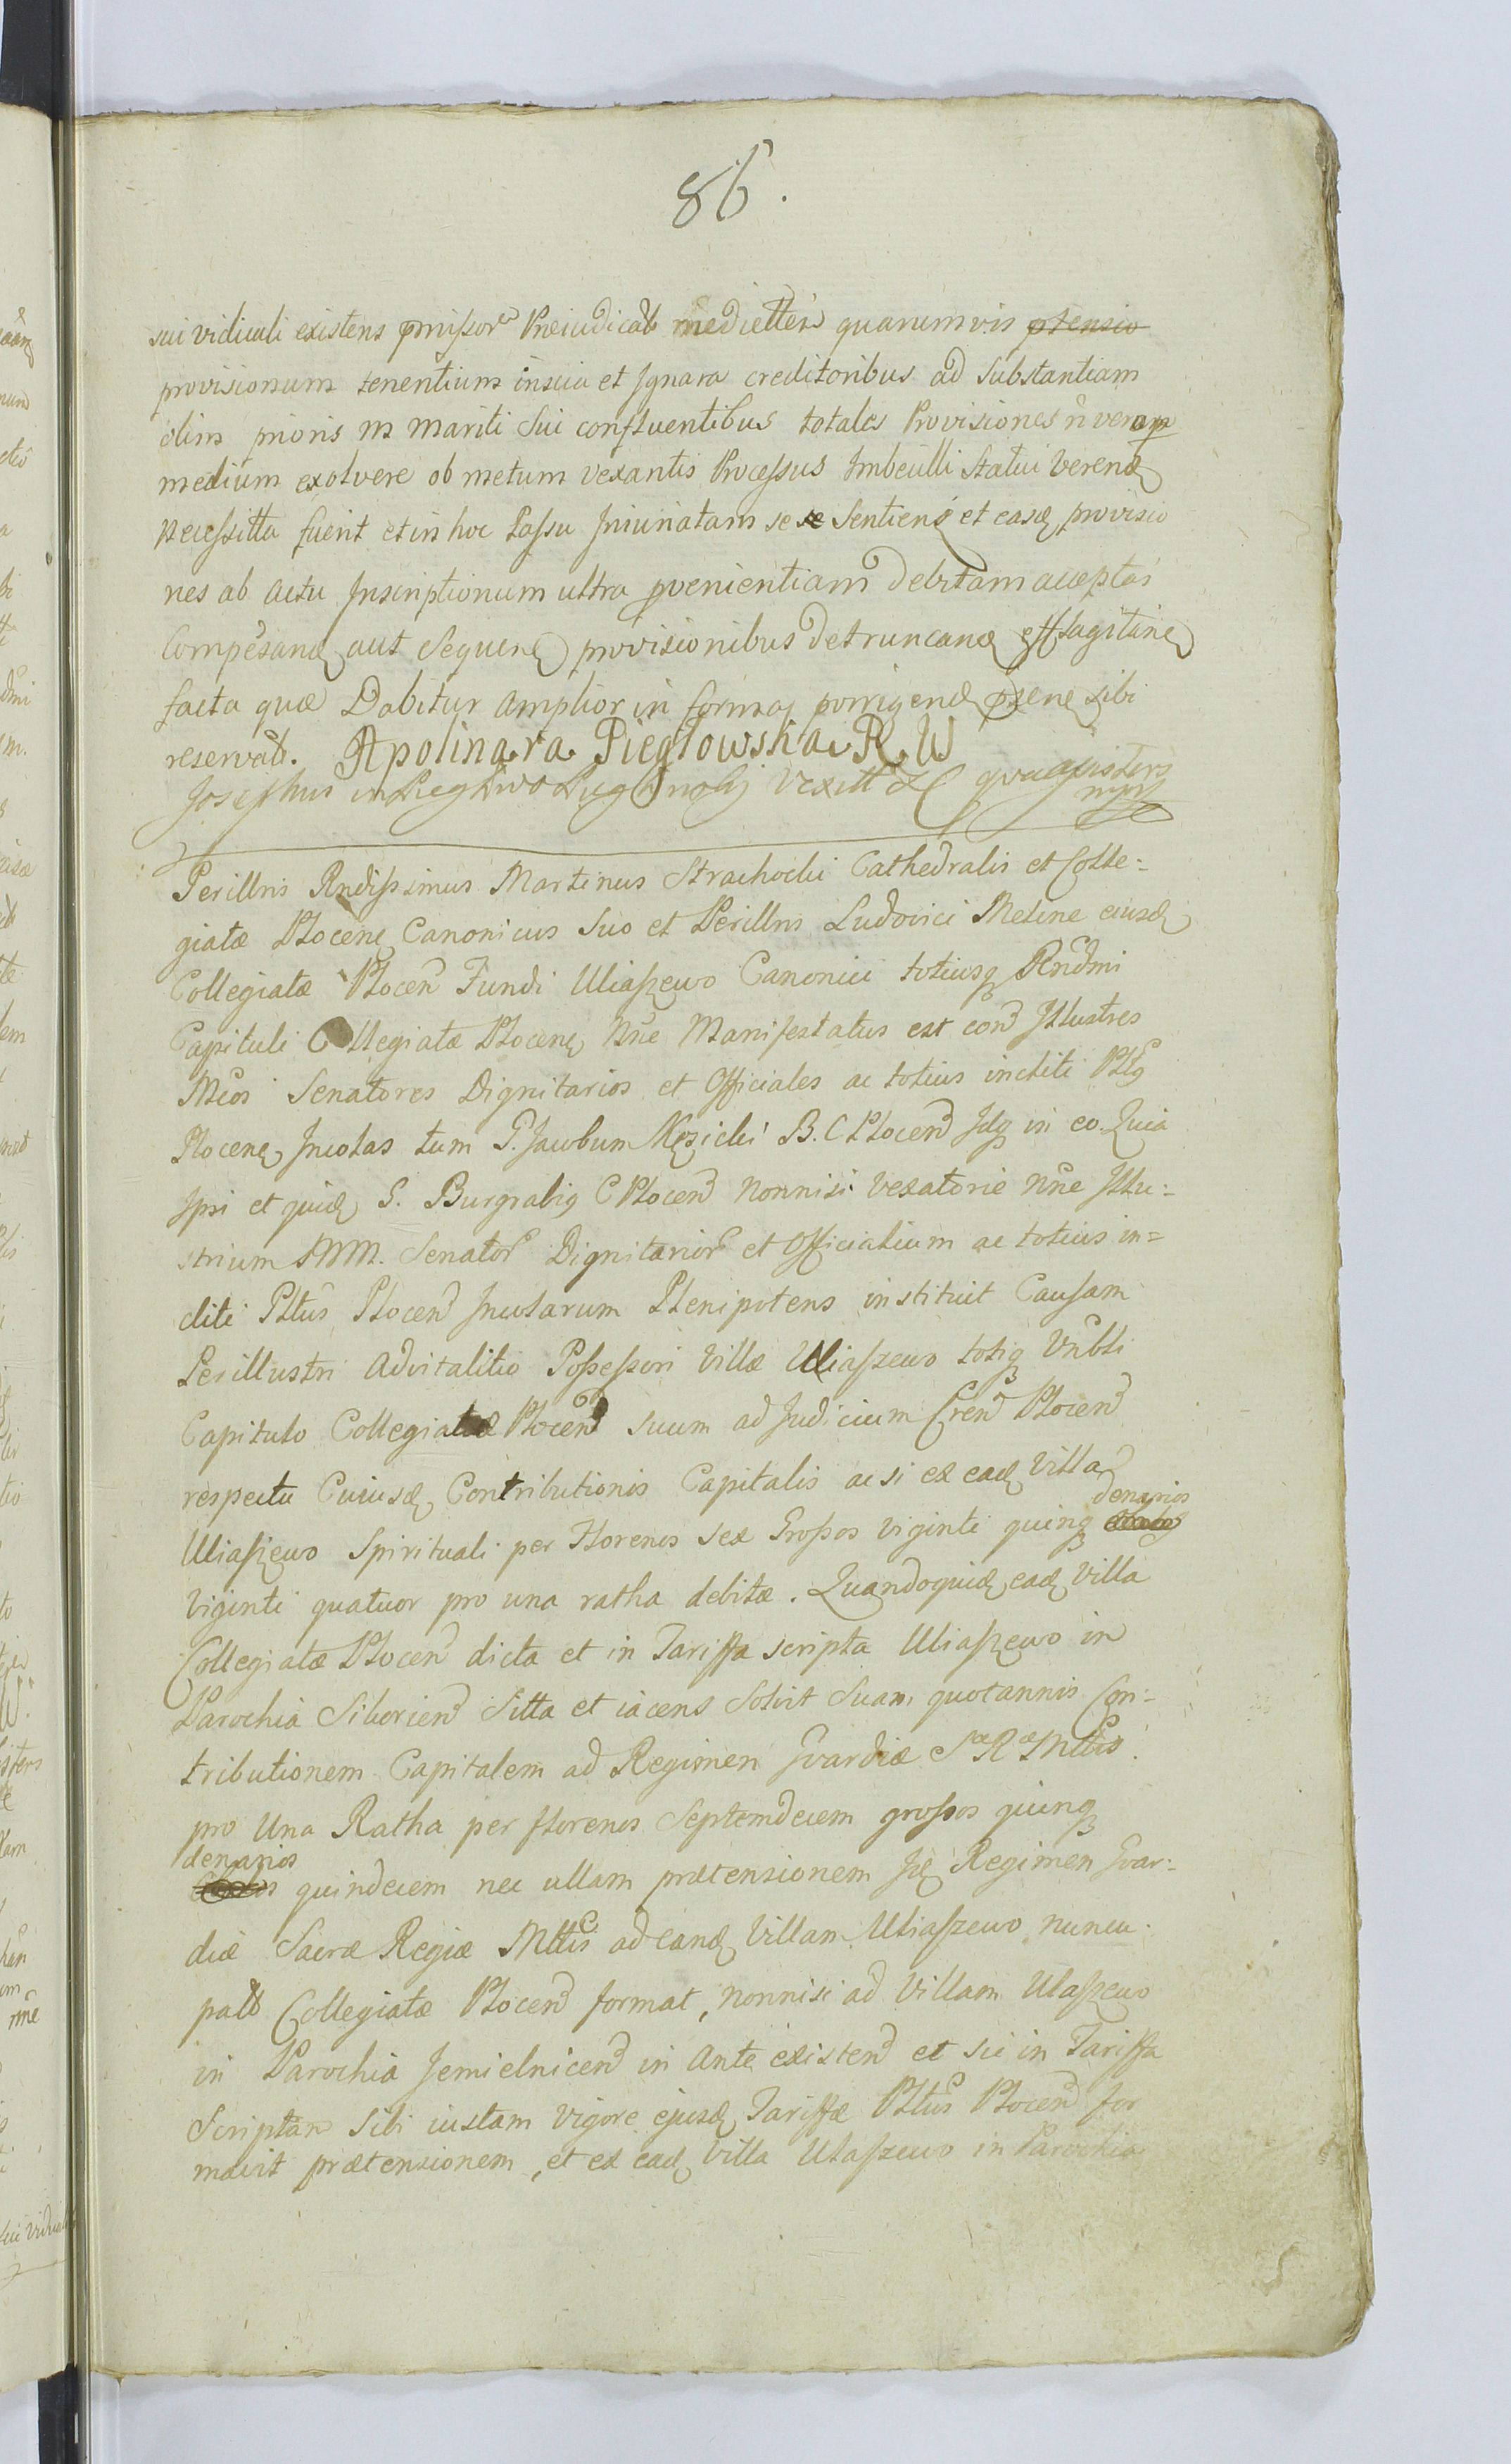 86.
sui viduali existens pmissor Preiudicab medietten quarumvis ptensio
provisionum tenentium inscia et Ignara creditoribus ad Substantiam
olim prioris M Mariti Sui confluentibus totales Provisiones n vero p
medium exolvere ob metum vexantis Processus Imbecilli Statui Verend
Necessitta fuerit et in hoc Passu Iniuriatam se se Sentiens et easd provisio
nes ab actu Inscriptionum ultra pvenientiam debitam acceptas
Compesand aut Sequen provisionibus detruncand efflagitan
facta quæ Dabitur amplior in forma porrigend sibi
reservat. Apolinara Piegłowska R. W
Josephus in
Perillris Rndissimus Martinus Strachocki Cathedralis et Colle=
giatæ Plocen Canonicus Suo et Perillris Ludovici Meline eiusd
Collegiatæ Plocen Fundi Uliaszewo Canonici totiusq Rndmi
Capituli Collegiatæ Plocen Nne Manifestatus est cord Illustres
Mcos Senatores Dignitarios et Officiales ac totius incliti Plts
Plocen Incolas tum G. Jacobum Kęsicki B. C Plocen Idq in eo. Quia
Ipsi et quid G. Burgrabig C Plocen nonnisi vexatorie Nne Illu=
strium MM. Senator Dignitarior et Officialium ac totius in=
cliti Pltus Plocen Incolarum Plenipotens instituit Causam
Perillustri Advitalitio Possessori Villæ Uliaszewo totiq Vnbli
Capitulo Collegiatæ Plocen suum ad Judicium Cren Plocen
respectu Cuiusd Contributionis Capitalis ac si ex ead Villa
denarios
Uliaszewo Spirituali per Florenos sex Grossos viginti quinq
Viginti quatuor pro una ratha debitæ. Quandoquid ead Villa
Collegiatæ Plocen dicta et in Tariffa scripta Uliaszewo in
Parochia Siberien Sitta et iacens Solvit Suam quotannis Con=
tributionem Capitalem ad Regimen Gvardiæ S R Mttis
pro Una Ratha per florenos Septemdecem grossos quinq
denarios
quindecem nec ullam prætensionem Id Regimen Gvar=
diæ Sacræ Regiæ Mttis ad eand Villam Uliaszewo nuncu
patt Collegiatæ Plocen format, nonnisi ad Villam Ulaszewo
in Parochia Jemielnicen in Ante existen et sic in Tariffa
Scriptam Sibi iustam vigore ejusd Tariffæ Pltus Plocen for
mavit prætensionem, et ex ead Villa Ulaszewo in Parochia